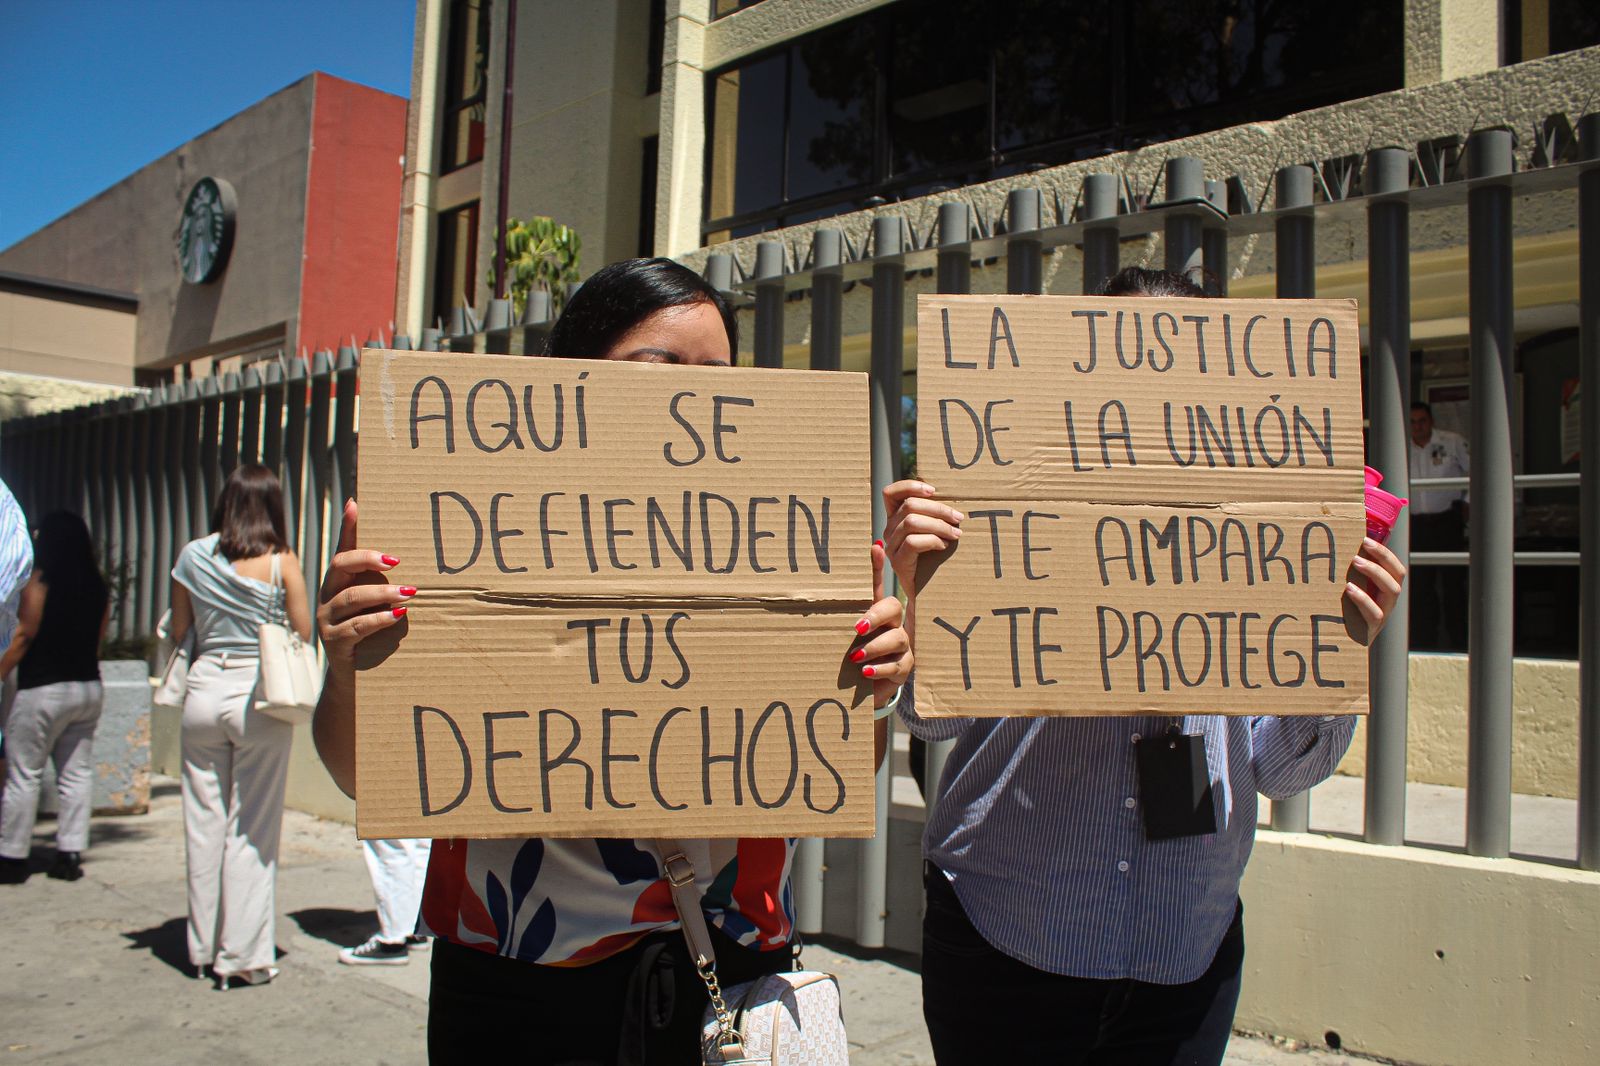 AQUÍ SE
DEFIENDEN
TUS
DERECHOS
LA JUSTICIA
DE LA UNIÓN
TE AMPARA
Y TE PROTEGE